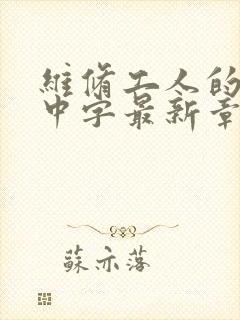 維脩工人的
中字最新章
蘇亦落